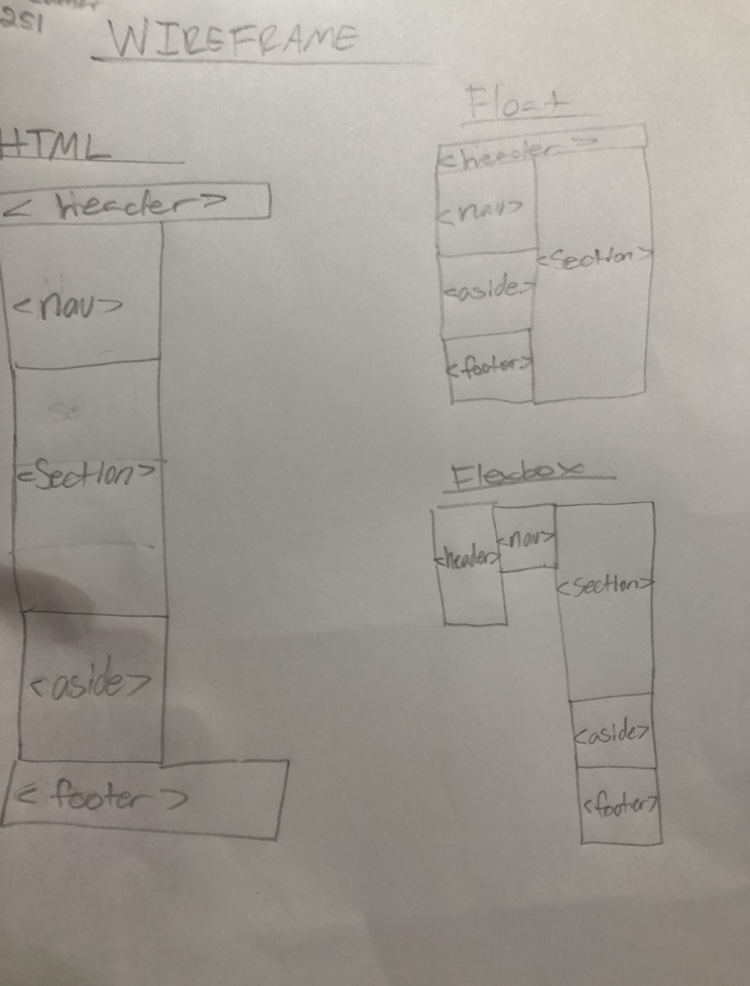 251
WIREFRAME
HTML
<header>
<nav>
se
<Section>
<aside>
<footer>
Float
<header>
<nav>
<Section>
<aside>
<footer>
Flexbox
<header>
<nav>
<Section>
<aside>
<footer>